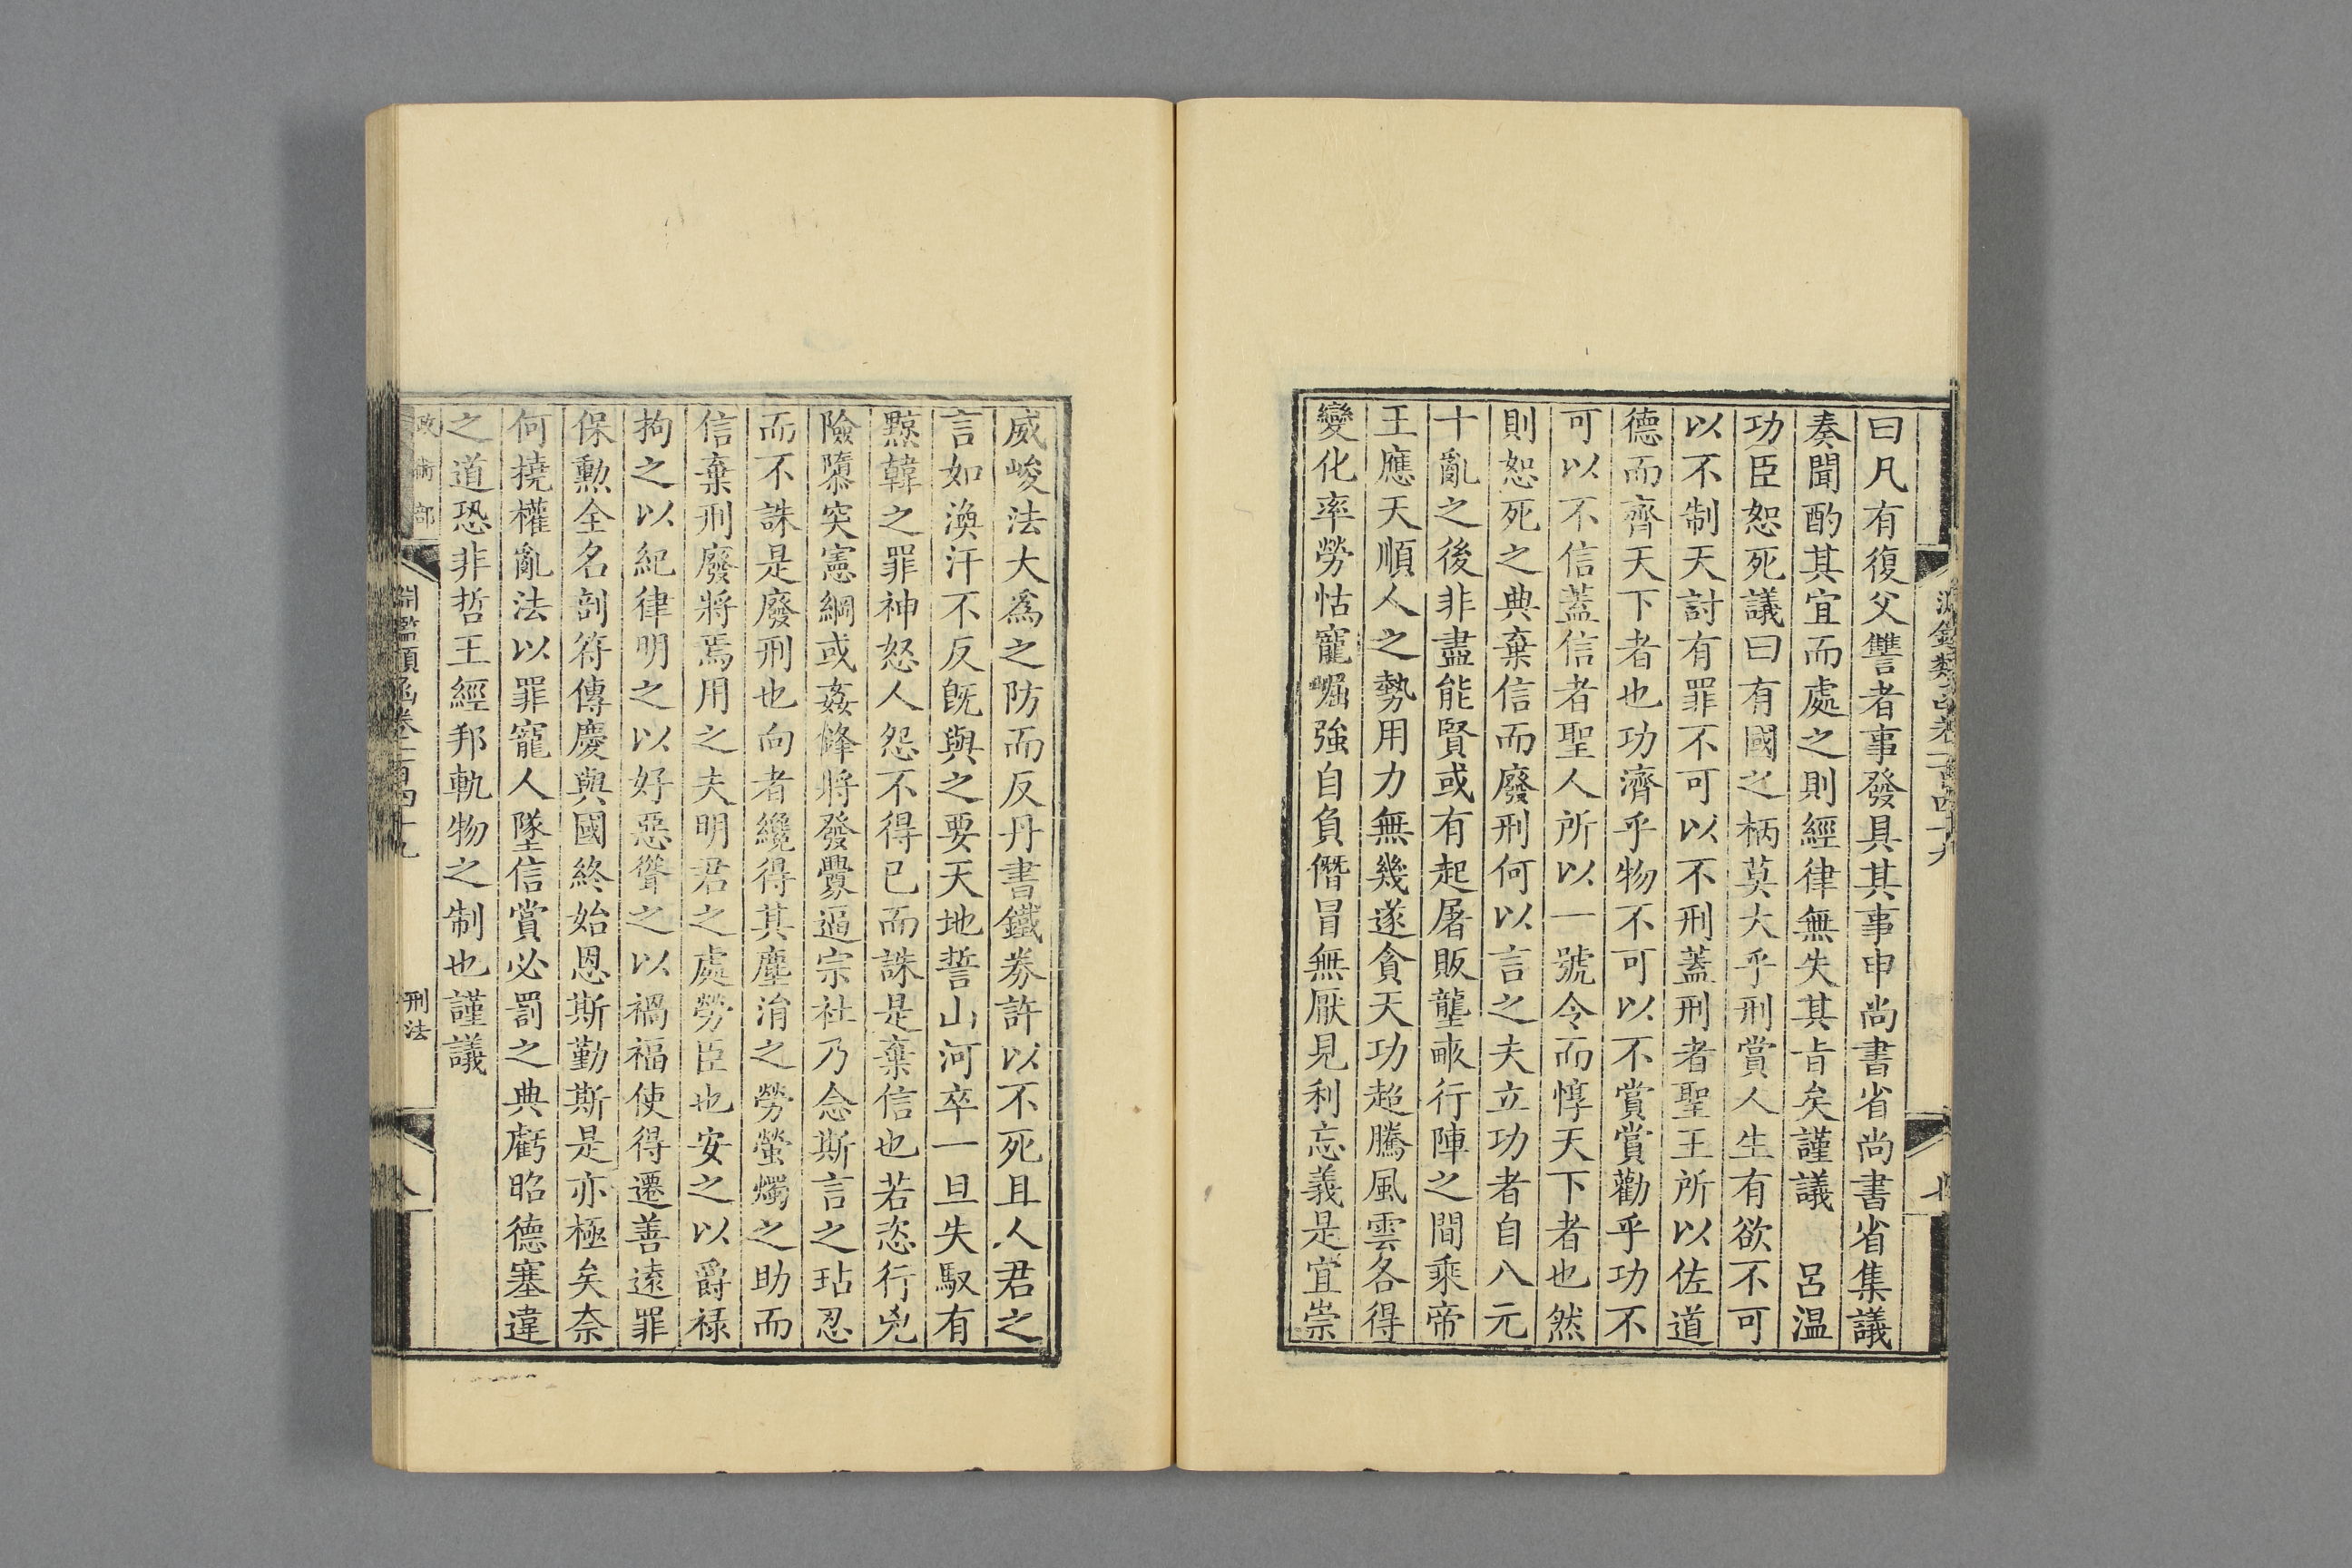 曰凡有復父讐者事發具其事申尚書省尚書省集議
奏聞酌其宜而處之則經律無失其㫖矣謹議　呂温
功臣恕死議曰有國之柄莫大乎刑賞人生有欲不可
以不制天討有罪不可以不刑蓋刑者聖王所以佐道
德而齊天下者也功濟乎物不可以不賞賞勸乎功不
可以不信蓋信者聖人所以一號令而惇天下者也然
則恕死之典棄信而廢刑何以言之夫立功者自八元
十亂之後非盡能賢或有起屠販壟畝行陣之間乘帝
王應天順人之勢用力無幾遂貪天功超騰風雲各得
變化率勞怙寵崛強自負僭冒無厭見利忘義是宜崇
威峻法大為之防而反丹書鐵劵許以不死且人君之
言如渙汗不反既與之要天地誓山河卒一旦失馭有
黥韓之罪神怒人怨不得已而誅是棄信也若恣行兇
險隳突憲網或姦絳將發釁逼宗社乃念斯言之玷忍
而不誅是廢刑也向者纔得其塵涓之勞螢燭之助而
信棄刑廢將焉用之夫明君之處勞臣也安之以爵祿
拘之以紀律明之以好惡聳之以禍福使得遷善遠罪
保勲全名剖符傳慶與國終始恩斯勤斯是亦極矣奈
何撓權亂法以罪寵人墜信賞必罰之典虧昭德塞違
之道恐非哲王經邦軌物之制也謹議
政術部
淵鑑類函卷一百四十九
刑法
八